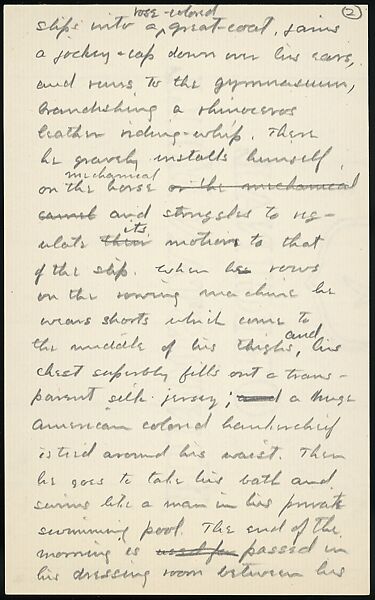 (2)
rose-colored
slips into a great-coat, jams
a jockey-cap down over his ears
and runs to the gymnasium,
brandishing a rhinoceros
leather riding-whip. There
he gravely installs himself
mechanical
on the horse or the mechanical
camel and struggles to reg-
its
ulate their motions to that
of the ship. When he rows
on the rowing machine he
wears shorts which come to
and
the middle of his thighs, his
chest superbly fills out a trans-
parent silk jersey; and a huge
American colored handkerchief
is tied around his waist. Then
he goes to take his bath and
swims like a man in his private
swimming pool. The end of the
morning is used for passed in
his dressing room between his